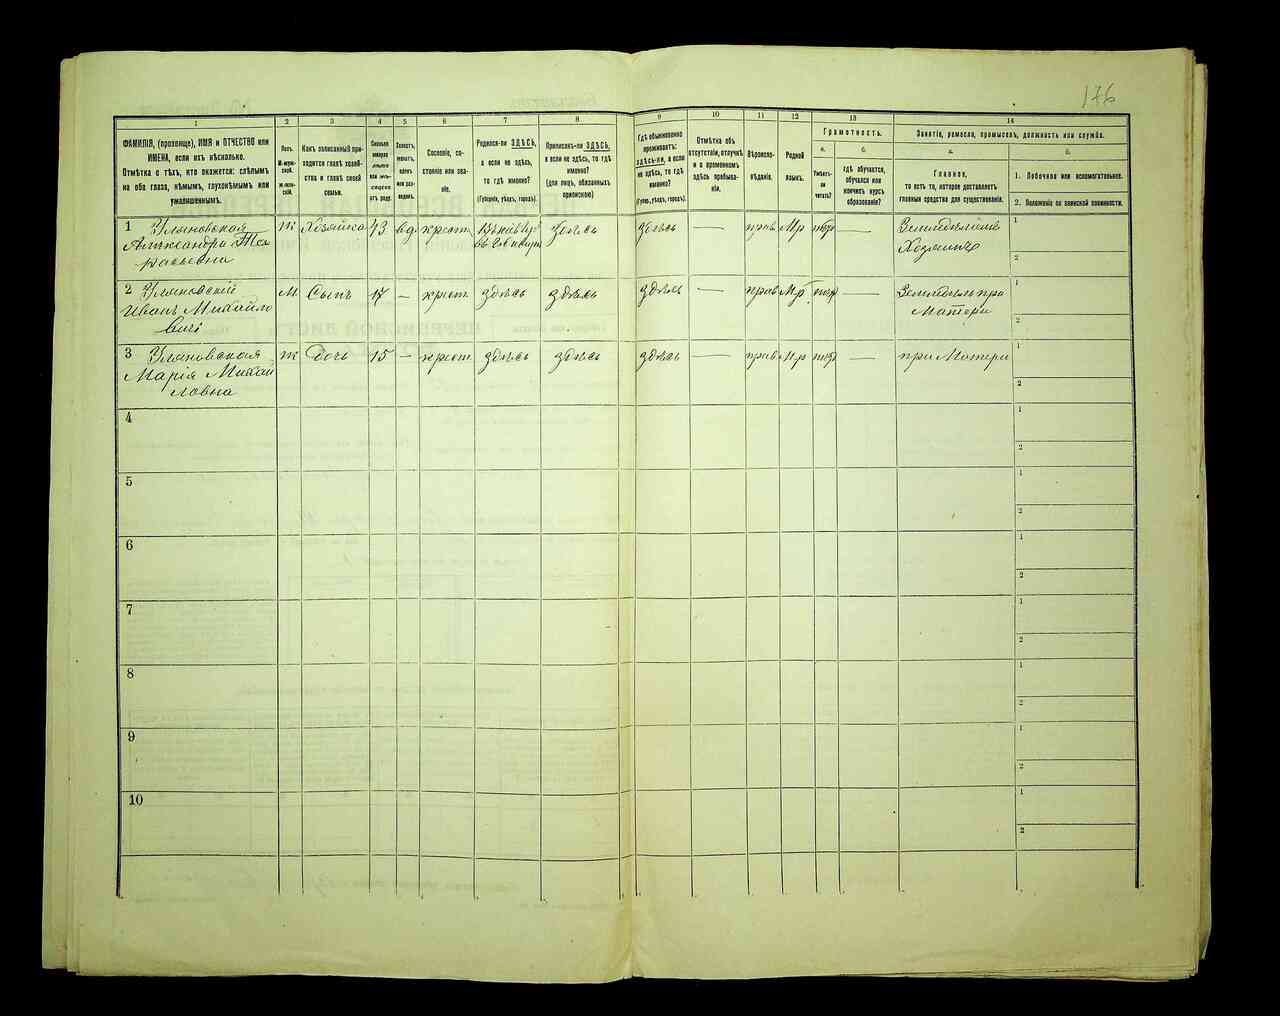 176
1
2
3
4
5
6
7
8
9
10
11
12
13
14
ФАМИЛІЯ, (прозвище), ИМЯ и ОТЧЕСТВО или
ИМЕНА, если ихъ нѣсколько.
Отмѣтка о тѣхъ, кто окажется: слѣпымъ
на оба глаза, нѣмымъ, глухонѣмымъ или
умалишеннымъ.
Полъ.
М-муж-
ской.
Ж-жен-
скій.
Какъ записанный при-
ходится главѣ хозяй-
ства и главѣ своей
семьи.
Сколько
минуло
лѣтъ
или мѣ-
сяцевъ
отъ роду.
Холостъ,
женатъ,
вдовъ
или раз-
веденъ.
Сословіе, со-
стояніе или зва-
ніе.
Родился-ли ЗДѢСЬ,
а если не здѣсь,
то гдѣ именно?
(Губернія, уѣздъ, городъ).
Приписанъ-ли ЗДѢСЬ,
а если не здѣсь, то гдѣ
именно?
(для лицъ, обязанныхъ
припискою)
Гдѣ обыкновенно
проживаетъ:
ЗДѢСЬ-ли, а если
не здѣсь, то гдѣ
именно?
(Губер., уѣздъ, городъ).
Отмѣтка объ
отсутствіи, отлучкѣ
и о временномъ
здѣсь пребыва-
ніи.
Вѣроиспо-
вѣданіе.
Родной
языкъ.
Грамотность.
а.
Умѣетъ-
ли
читать?
б.
гдѣ обучается,
обучался или
кончилъ курсъ
образованія?
Занятіе, ремесло, промыселъ, должность или служба.
а.
Главное,
то есть то, которое доставляетъ
главныя средства для существованія.
б.
1. Побочное или вспомогательное.
2. Положеніе по воинской повинности.
1 Уляновская Ж Хозяйка 43 вд крест здѣсь здѣсь — прав Мр —
Александра
Хозяинъ
1
2
2 Уляновскій М Сынъ 17 — крест здѣсь здѣсь здѣсь — прав Мр —
Иванъ Михайло
вичъ
матери
1
2
3 Уляновская Ж дочь 15 — крест здѣсь здѣсь здѣсь — прав Мр — при Матери
Марія Михай
ловна
1
2
4
1
2
5
1
2
6
1
2
7
1
2
8
1
2
9
1
2
10
1
2